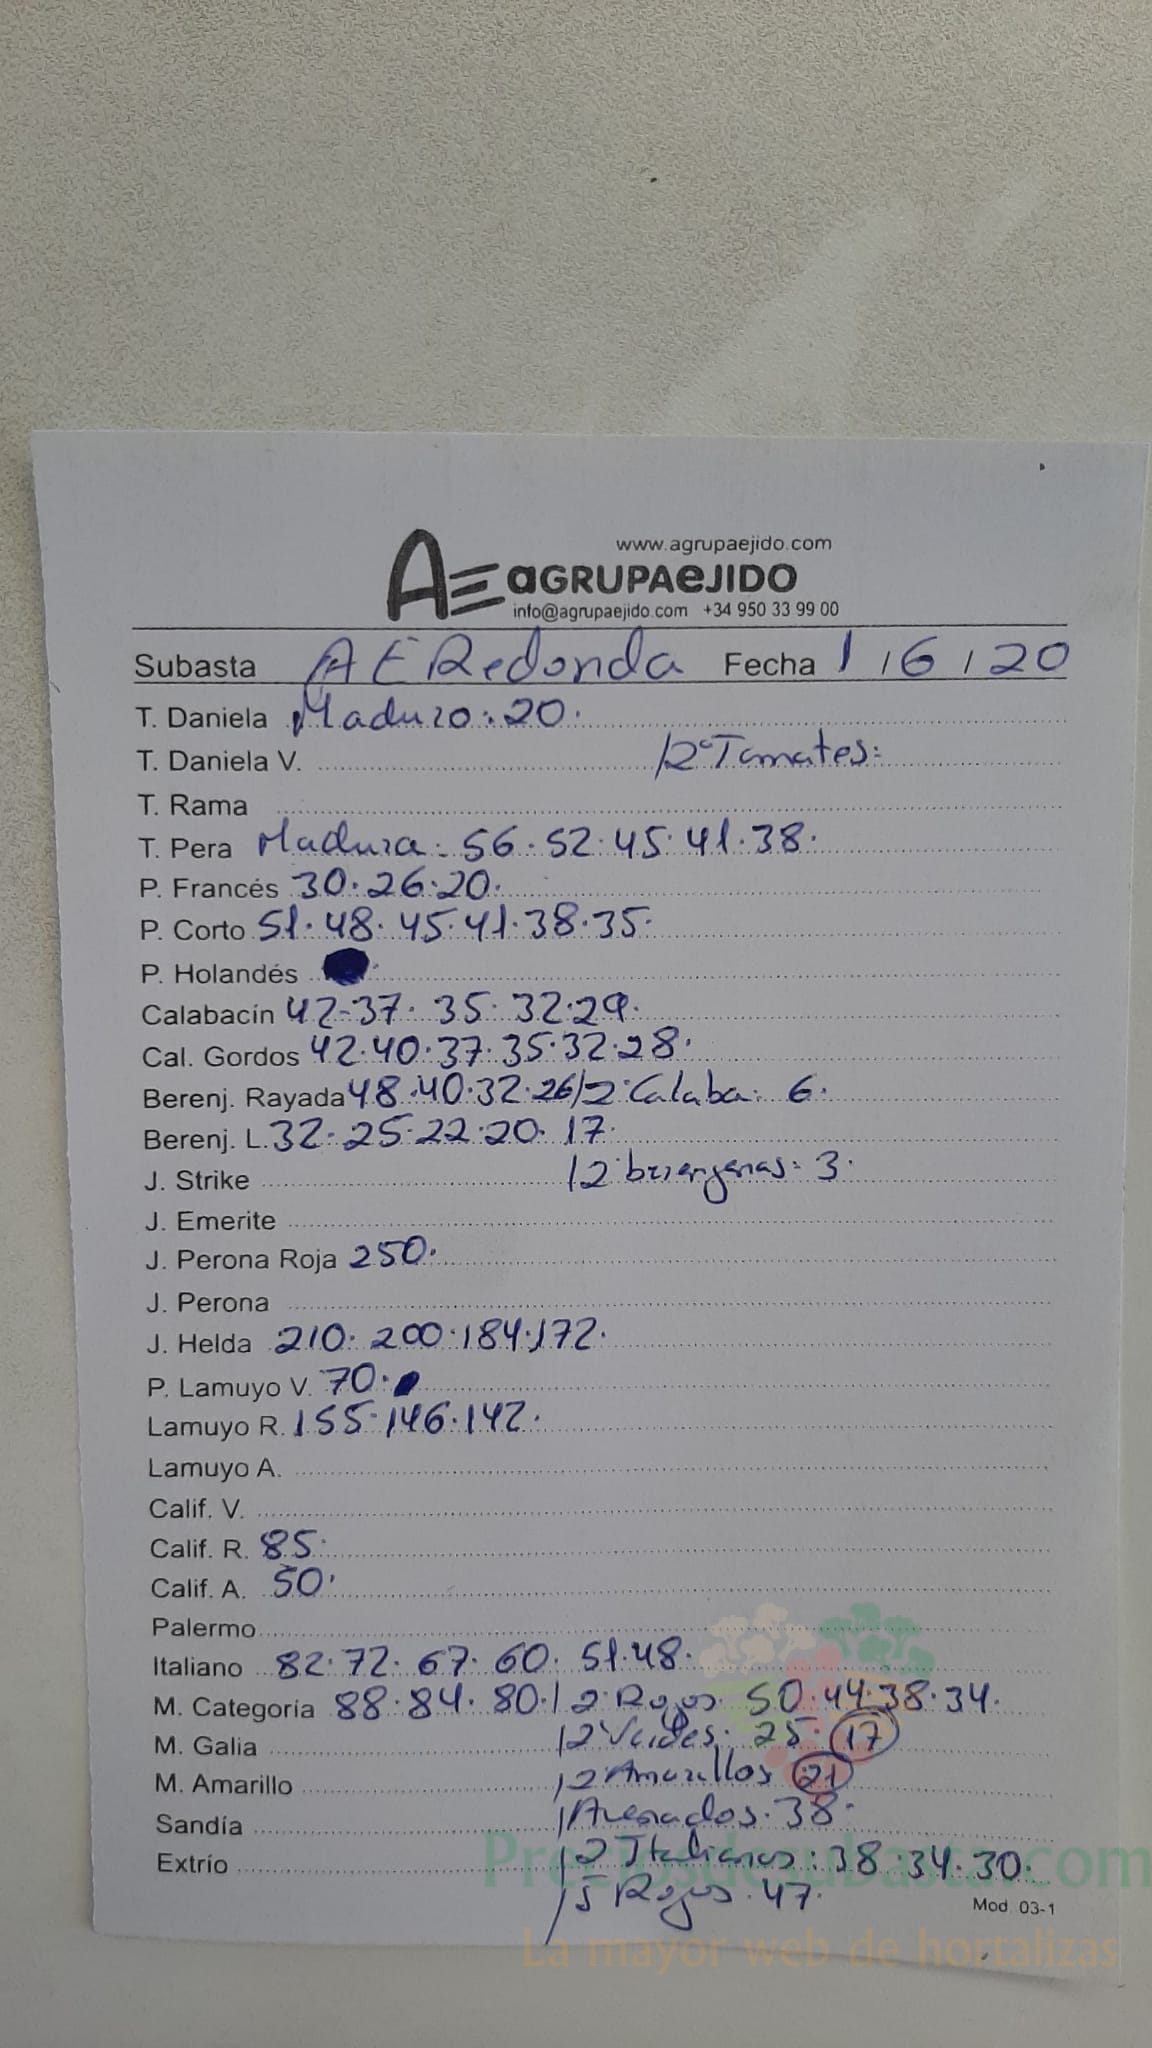 www.agrupaejido.com
AE aGRUPAeJIDO
info@agrupaejido.com +34 950 33 99 00
Subasta AE Redonda Fecha 1/6/20
T. Daniela Maduro: 20.
T. Daniela V. /2ª Tomates:
T. Rama
T. Pera Madura: 56. 52. 45. 41. 38.
P. Francés 30. 26. 20.
P. Corto 51. 48. 45. 41. 38. 35.
P. Holandés
Calabacín 42-37. 35. 32. 29.
Cal. Gordos 42. 40. 37. 35. 32. 28.
Berenj. Rayada 48. 40. 32. 26/2ª Calaba: 6.
Berenj. L. 32. 25. 22. 20. 17.
J. Strike /2ª berengenas: 3.
J. Emerite
J. Perona Roja 250.
J. Perona
J. Helda 210. 200. 184. 172.
P. Lamuyo V. 70.
Lamuyo R. 155. 146. 142.
Lamuyo A.
Calif. V.
Calif. R. 85.
Calif. A. 50.
Palermo
Italiano 82. 72. 67. 60. 51. 48.
M. Categoría 88. 84. 80. /2ª Rojos. 50. 44. 38. 34.
M. Galia /2ª Verdes: 25. 17
M. Amarillo /2ª Amarillos 21
Sandía /Asurcados. 38.
Extrío /2ª Italianos: 38. 34. 30.
/5 Rojos. 47.
Mod. 03-1
Preciosdesubasta.com
La mayor web de hortalizas